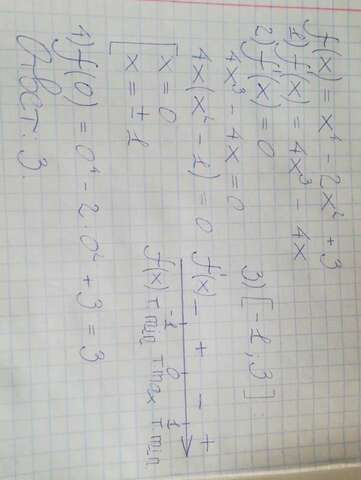 f(x) = x⁴ - 2x² + 3
1) f'(x) = 4x³ - 4x
2) f'(x) = 0
4x³ - 4x = 0
4x(x² - 1) = 0
[ x = 0
x = ±1
3) [-1, 3]:
f'(x) - + - +
-1 0 1
f(x) т.min т.max т.min
4) f(0) = 0⁴ - 2·0² + 3 = 3
Ответ: 3.